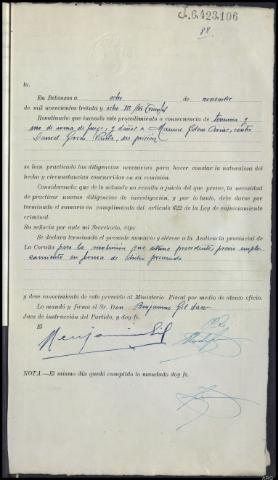 J.6.423.106
88.
En Betanzos a ocho de noviembre
de mil novecientos treinta y ocho III Año Triunfal
Resultando: que incoado este procedimiento a consecuencia de tenencia y
uso de arma de fuego, y daños a Manuel contra
Daniel en prisión
se han practicado las diligencias necesarias para hacer constar la naturaleza del
hecho y circunstancias concurridas en su comisión.
Considerando: que de lo actuado no resulta a juicio del que provee, la necesidad
de practicar nuevas diligencias de investigación, y por lo tanto, debe darse por
terminado el sumario en cumplimiento del artículo 622 de la Ley de enjuiciamiento
criminal.
Su señoría por ante mi Secretario, dijo:
Se declara terminado el presente sumario y elévese a la Audiencia provincial de
La Coruña para la resolución que estime procedente, previo emplazamiento
en forma de
y dese conocimiento de este proveído al Ministerio Fiscal por medio de atento oficio.
Lo mandó y firma el Sr. Don Benjamín Gil
Juez de instrucción del Partido, y doy fe.
El
Benjamín Gil
NOTA.—El mismo día quedó cumplido lo mandado doy fe.